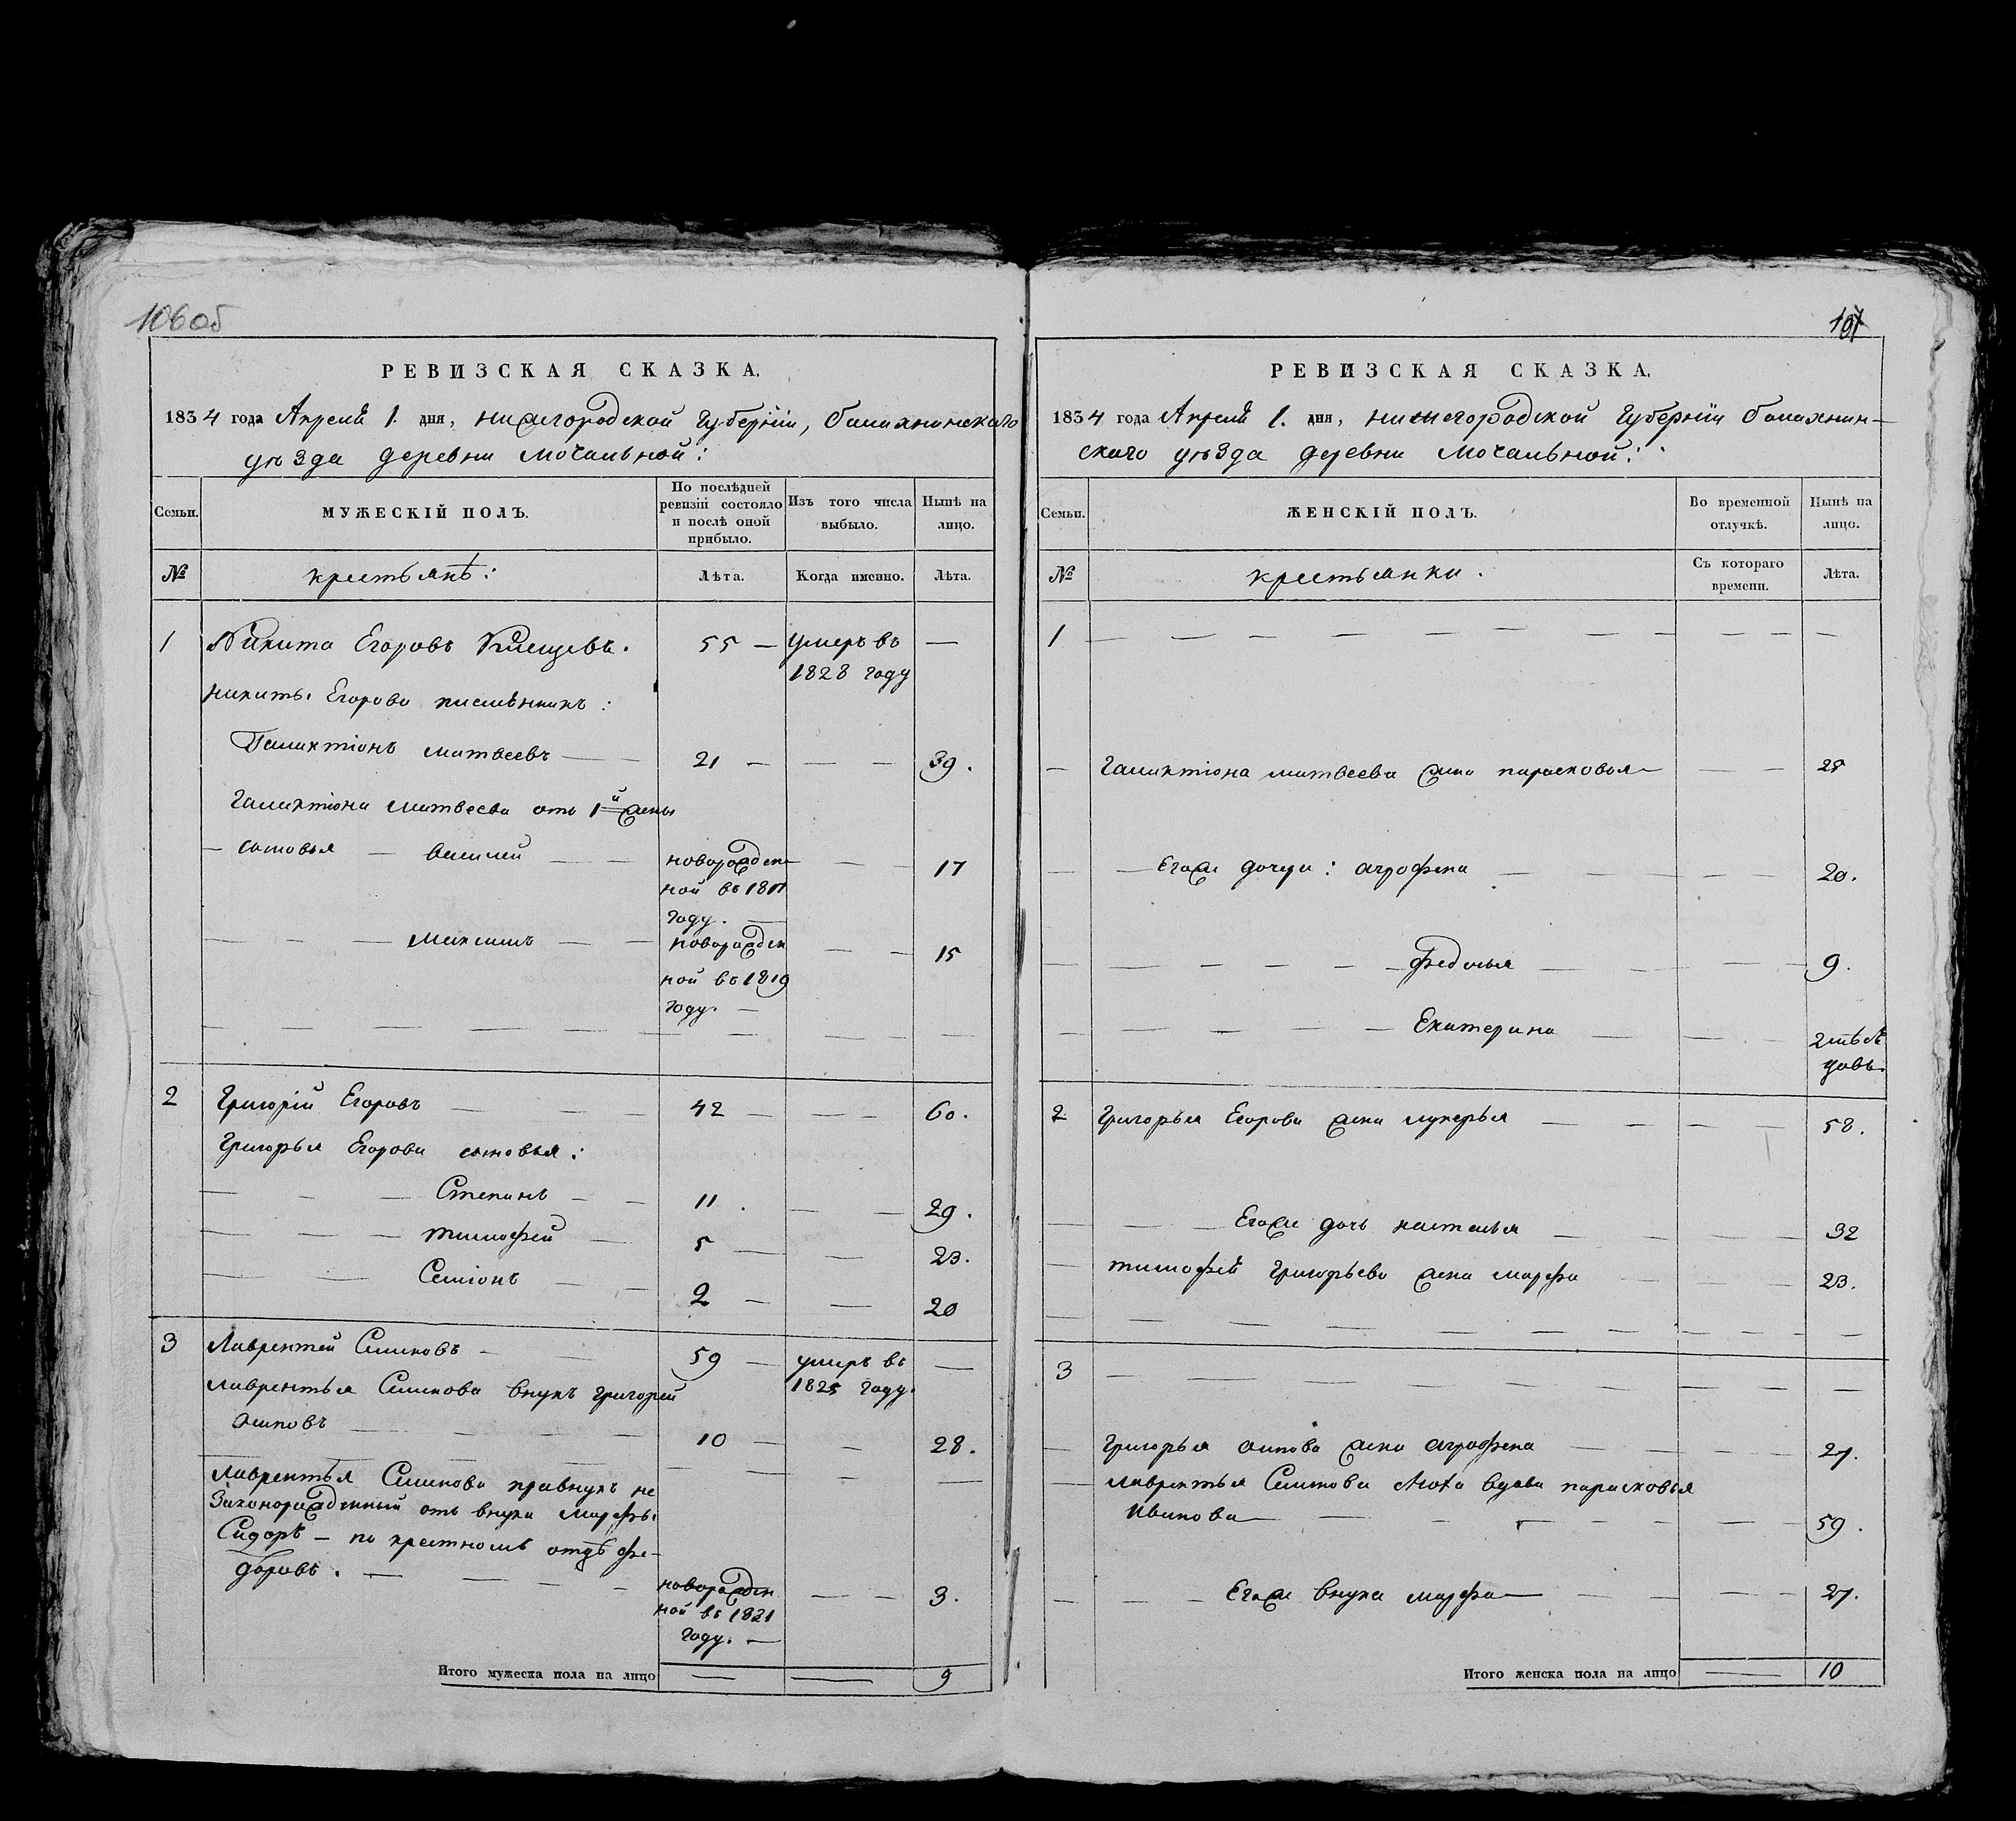 106об
РЕВИЗСКАЯ СКАЗКА.
1834 года Апреля 1. дня, нижегородской губернiи, балахнинскаго
уѣзда деревни Мочальной:
Семьи.
МУЖЕСКІЙ ПОЛЪ.
По послѣдней ревизіи состояло и послѣ оной прибыло.
Изъ того числа выбыло.
Нынѣ на лицо.
№
крестьянъ:
Лѣта.
Когда именно.
Лѣта.
1 Никита Егоровъ 55 — умеръ въ —
1828 году
никиты Егорова племѣникъ:
Галактiонъ матвеевъ — — 21 — — — 39.
Галактiона матвеева отъ 1й жены
— сыновья — василей — — новорожден- — — 17
ной въ 1817
году. —
— — — максимъ — — новорожден — — 15
ной въ 1819
году. —
2 Григорiй Егоровъ — — — 42 — — — 60.
Григорья Егорова сыновья:
— — — Степанъ — — 11. — — 29.
— — — тимофей — 5 — — 23.
— — — Семiонъ — — 2 — — 20
3 Лаврентей Семионовъ — — 59 — умеръ въ —
1825 году.
лаврентья Семионова внукъ григорей
осиповъ — — — — 10 — — 28.
лаврентья Семионова правнукъ не
законорожденный отъ внуки марфы
Сидоръ — по крестномъ отцѣ фе-
доровъ. — — — — новорожден — — 3.
ной въ 1831
году. —
Итого мужеска пола на лицо — — 9
107
РЕВИЗСКАЯ СКАЗКА.
1834 года Апреля 1. дня, нижегородской губернiи балахнин-
скаго уѣзда деревни Мочальной:
Семьи.
ЖЕНСКІЙ ПОЛЪ.
Во временной отлучкѣ.
Нынѣ на лицо.
№
крестьянки.
Съ котораго времени.
Лѣта.
1 — — — — — — — — — —
— Галактiона матвеева жена парасковья — — — 28
— — Егоже дочери: агрофена — — — — — 20.
— — — — — федосья — — — — 9.
— — — — Екатерина — — — 2 мѣся
цовъ.
2 Григорья Егорова жена лукерья — — — — — 58.
— — — Егоже дочь наталья — — — — 32
— тимофея григорьева жена марфа — — — — 23.
3 — — — — — — — — — —
— Григорья осипова жена агрофена — — — — 27.
— лаврентья Семионова вдова парасковья
Иванова — — — — — — — — 59.
— — — Егоже внука марфа — — — — — 27.
Итого женска пола на лицо — 10